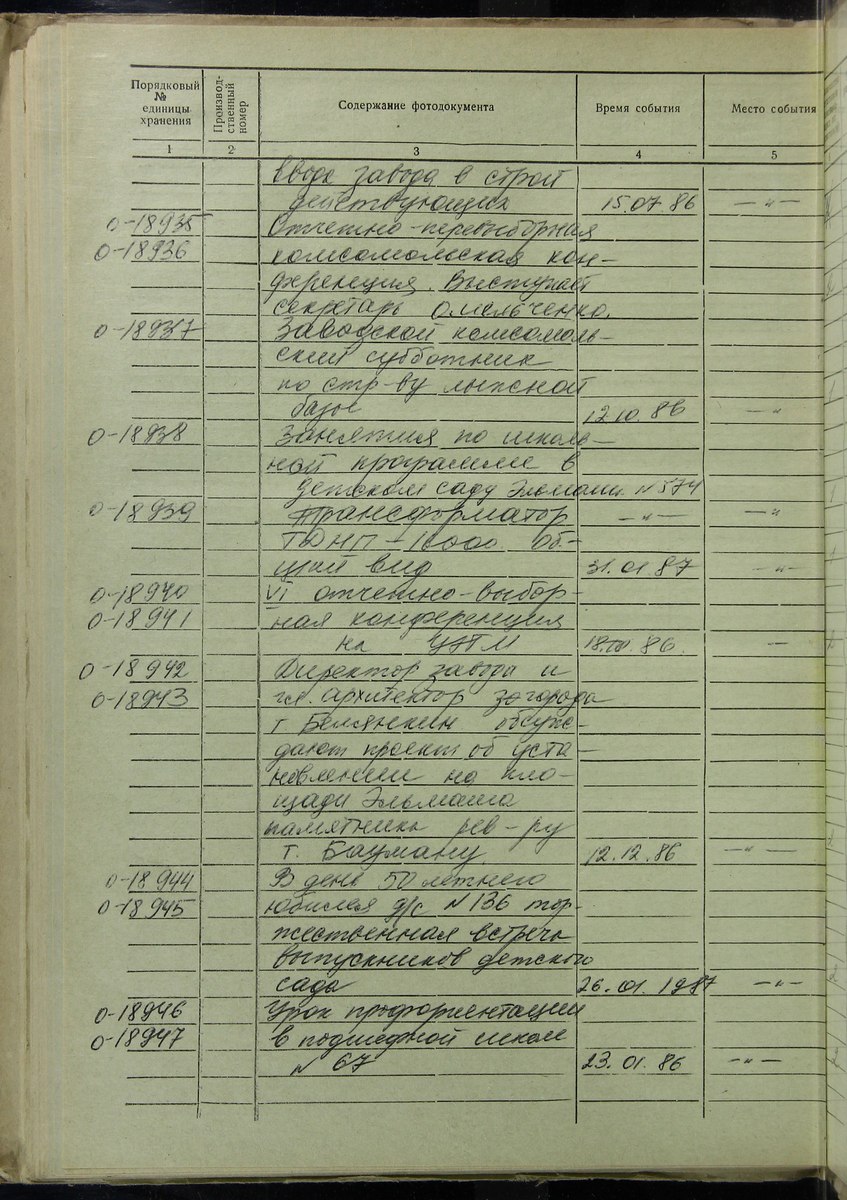 Порядковый № единицы хранения | Производ-ственный номер | Содержание фотодокумента | Время события | Место события
1 | 2 | 3 | 4 | 5
ввода завода в строй
действующих 15.07.86 —"—
0-18935 Отчетно-перевыборная
0-18936 комсомольская кон-
ференция. Выступает
секретарь Омельченко.
0-18937 Заводской комсомоль-
ский субботник
по стр-ву лыжной
базы 12.10.86 —"—
0-18938 Занятия по школь-
ной программе в
детском саду Эльмаш. № 574
0-18939 Трансформатор —"— —"—
ТДНП-10000 об-
щий вид 31.01.87 —"—
0-18940 VI отчетно-выбор-
0-18941 ная конференция
на УЭТМ 86. —
0-18942 Директор завода и
0-18943 гл. архитектор города
т Белянкин обсуж-
дают проект об уста-
новлении на пло-
щади Эльмаша
памятника рев-ру
т. Бауману 12.12.86 —"—
0-18944 В день 50 летнего
0-18945 юбилея д/с № 136 тор-
жественная встреча
выпускников детского
сада 26.01.1987 —"—
0-18946 Урок профориентации
0-18947 в подшефной школе
№ 67 23.01.86 —"—